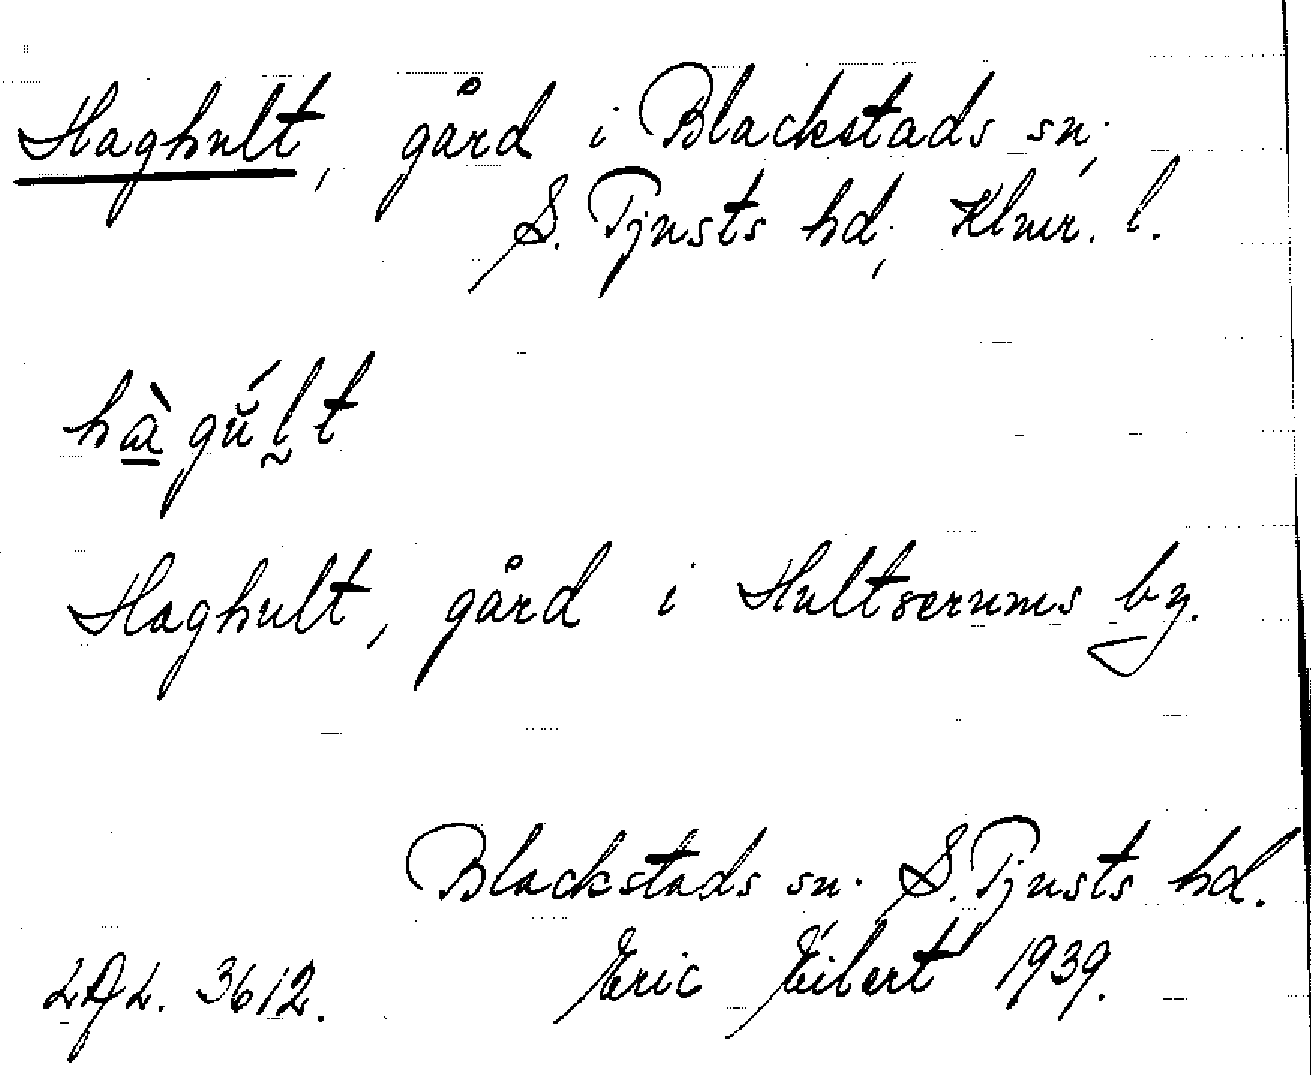 Haghult, gård i Blackstads sn,
S. Tjusts hd, Klmr. l.
hàgŭ́l̰t
Haghult, gård i Hultserums by.
Blackstads sn. S. Tjusts hd.
Eric Eibert 1939.
3612.